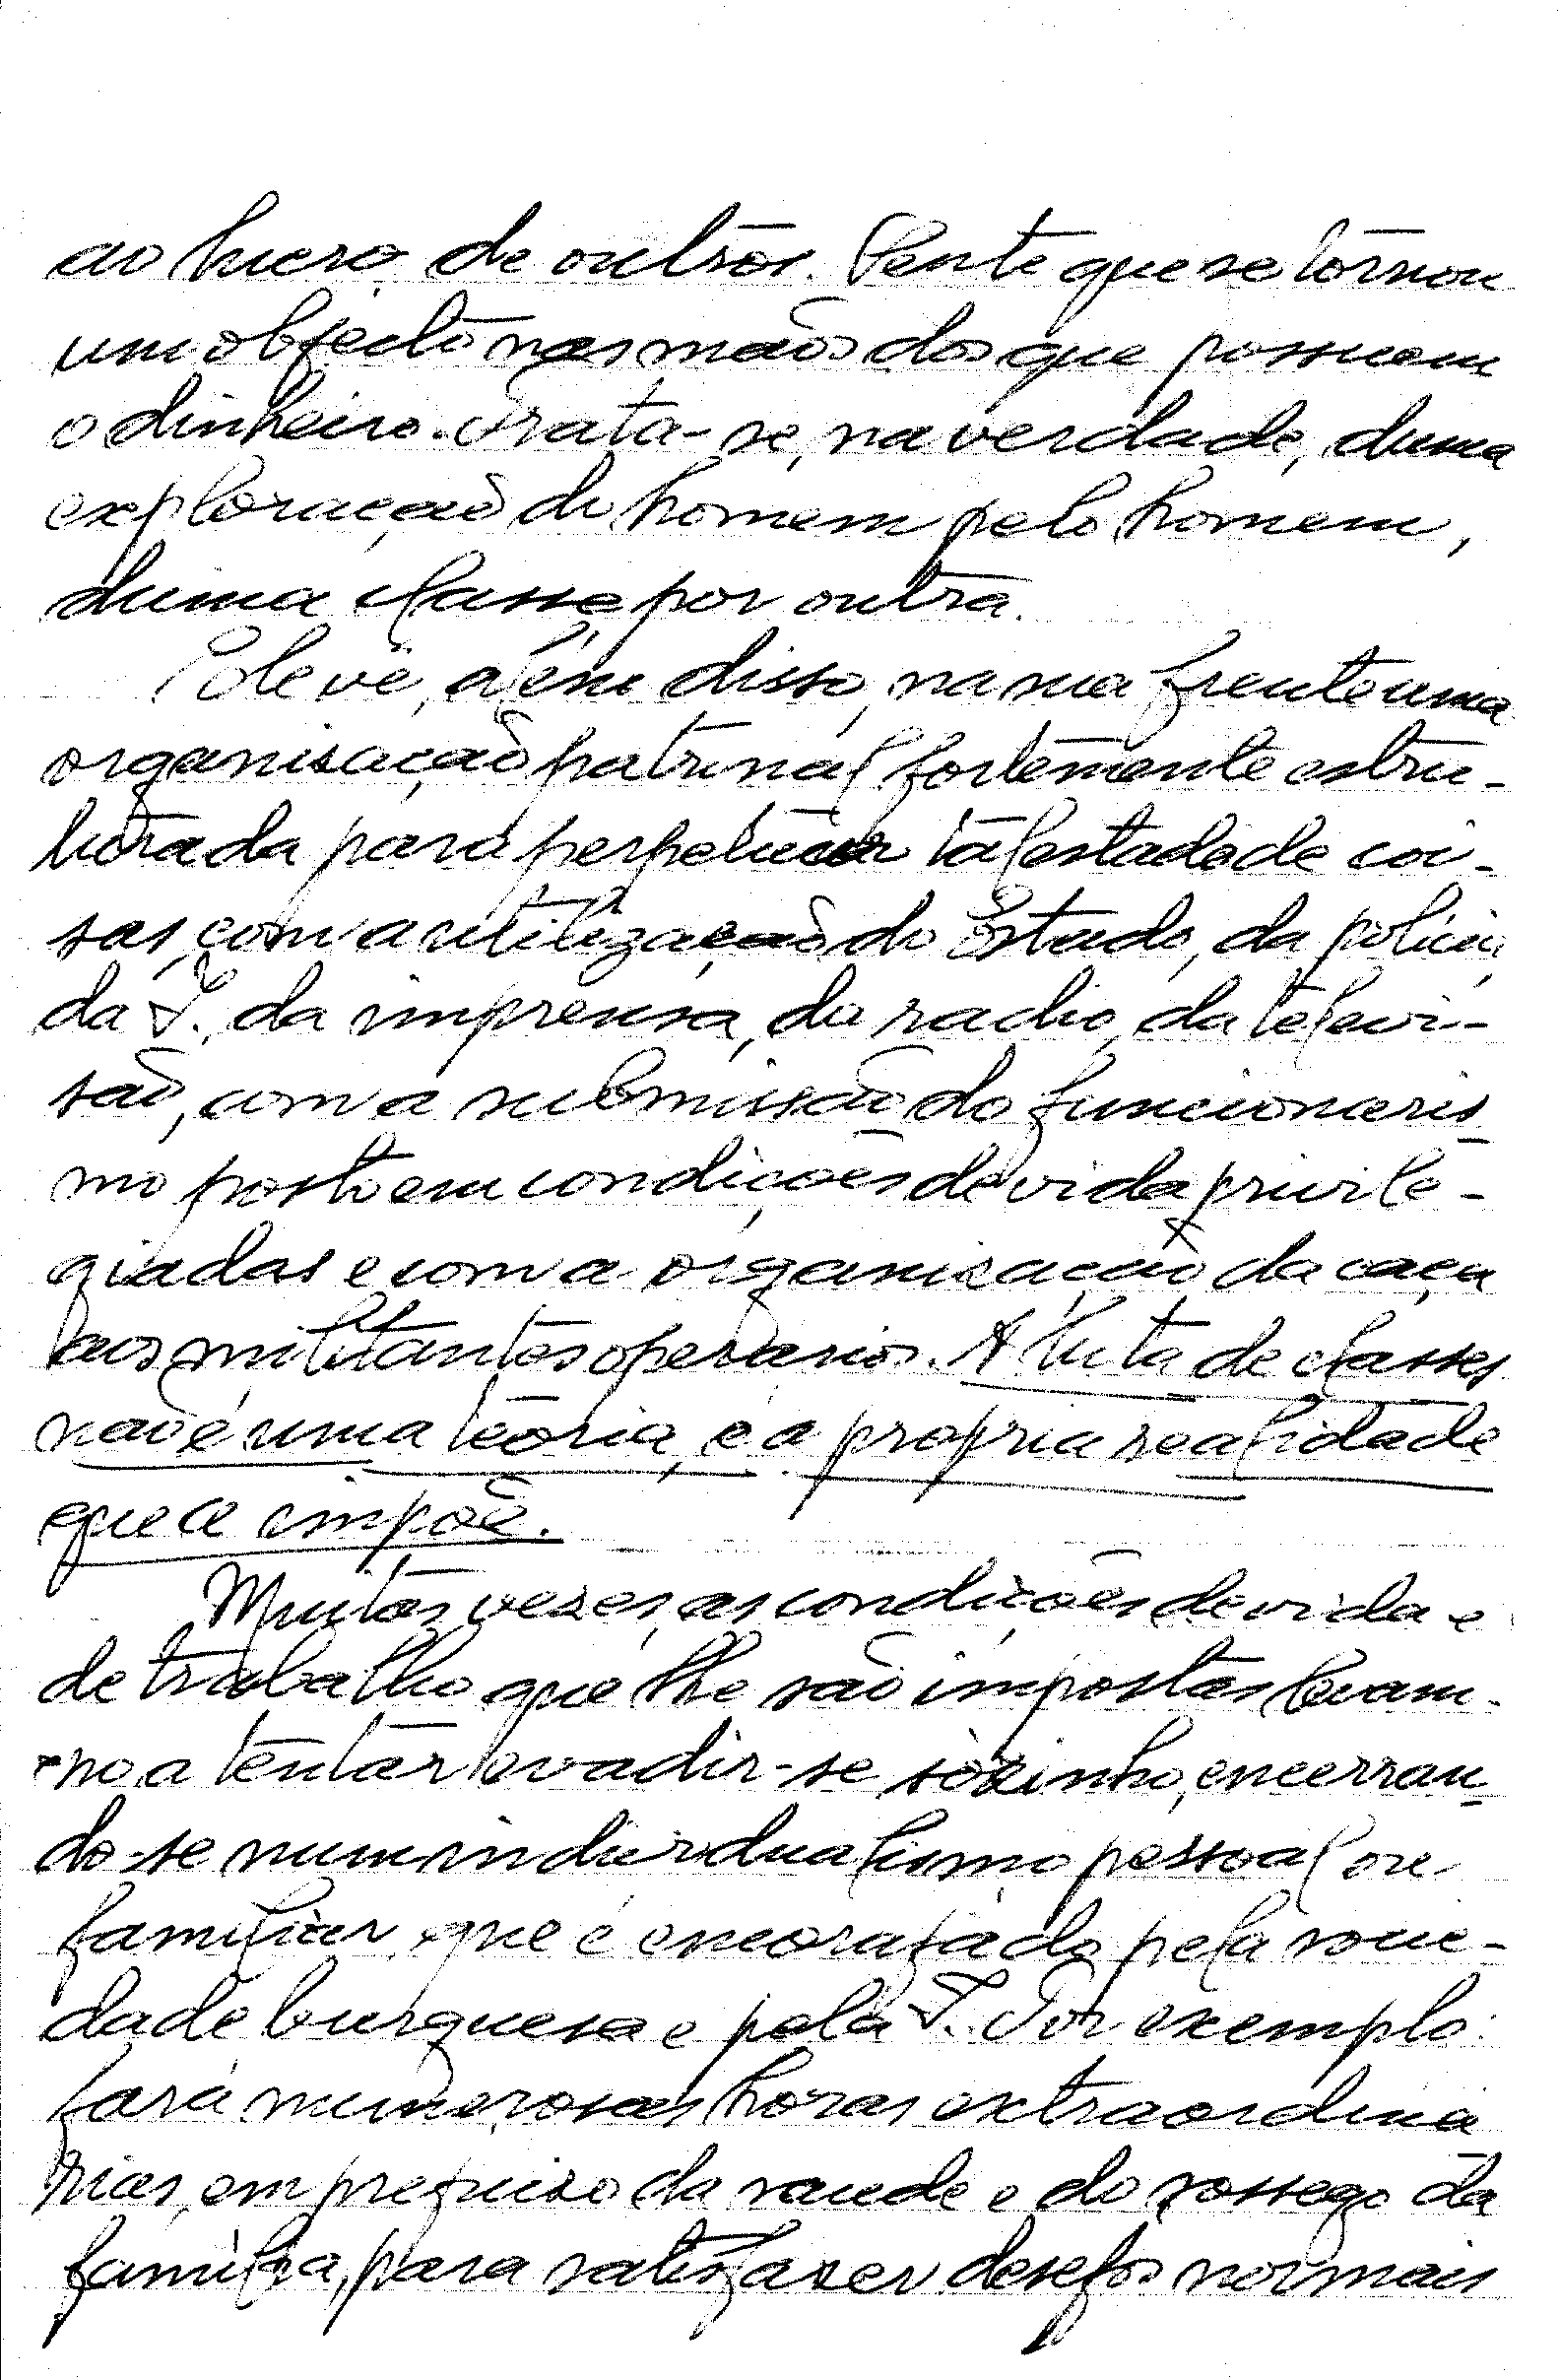 ao lucro de outros. Sente que se tornou
um objecto nas mãos dos que possuem
o dinheiro. Trata-se, na verdade, duma
exploração do homem pelo homem,
duma classe por outra.
Ele vê, além disso, na sua frente uma
organisação patronal fortemente estru-
turada para perpetuar tal estado de coi-
sas, com a utilização do Estado, da polícia,
da I., da imprensa, da radio, da televi-
são, com a submissão do funcionaris_
mo posto em condições de vida privilé-
giadas e com a organisação da caça
aos militantes operários. A luta de classes
não é uma teoria, é a propria realidade
que a impõe.
Muitas vezes, as condições de vida e
de trabalho que lhe são impostas levam-
-no a tentar evadir-se sòzinho, encerran_
do-se num individualismo pessoal ou
familiar que é encorajado pela socie-
dade burguesa e pela I. Por exemplo:
fará numerosas horas extraordiná_
rias, em prejuizo da saude e do sossego da
família, para satisfazer desejos normais